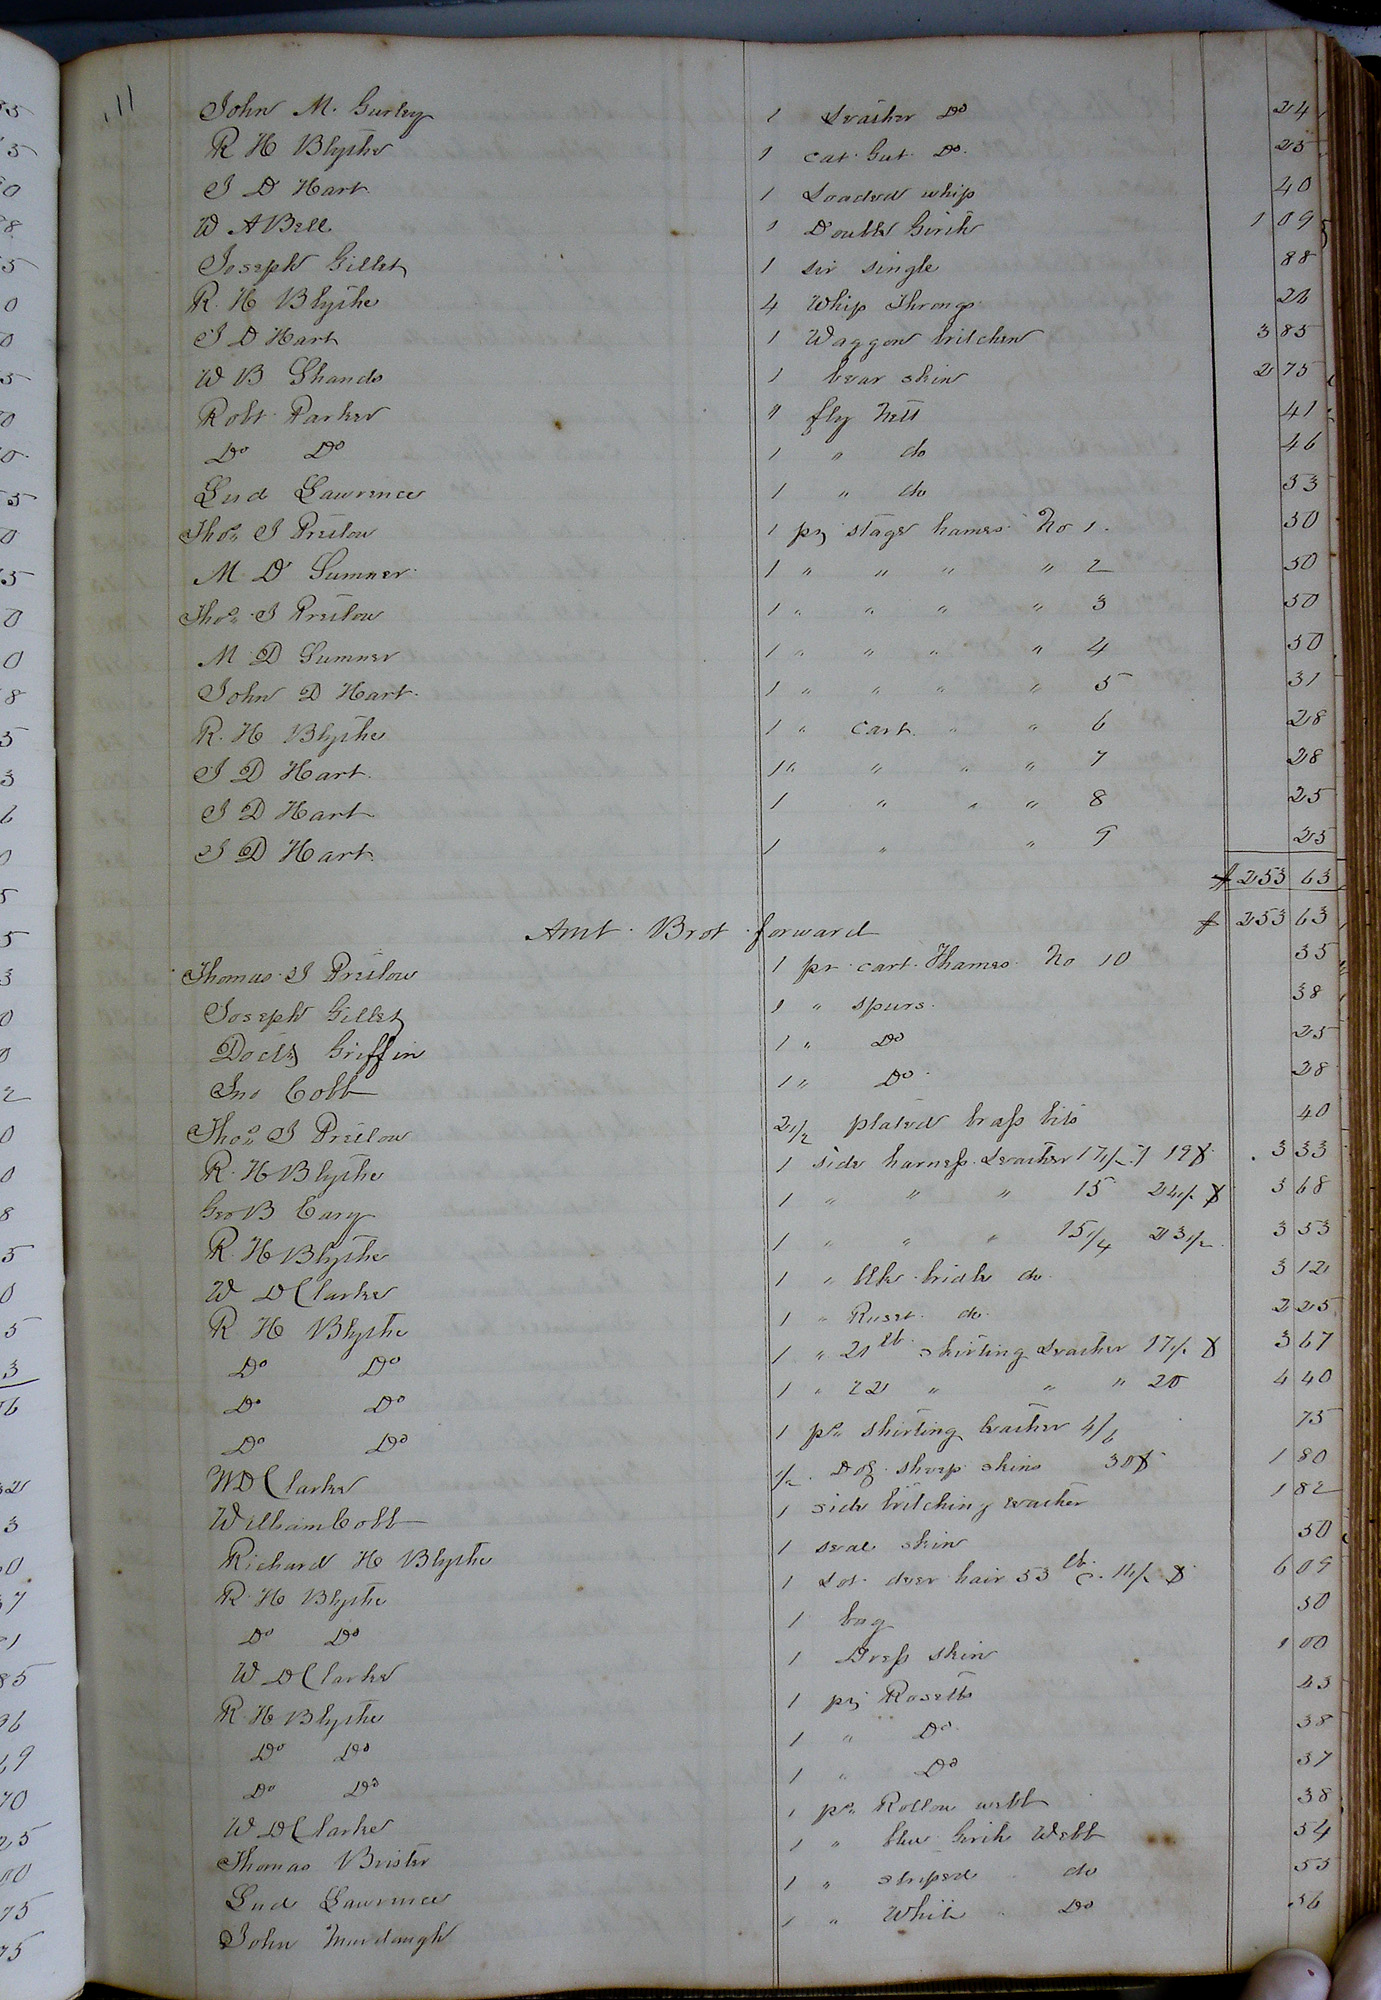 11
John M. Gurley 1 Leather Do 24
R H Blythe 1 cat Gut Do 25
J D Hart 1 Loaded whip 40
W A Bell 1 Double Girth 1 09
Joseph Gillet 1 sir single 88
R. H Blythe 4 Whip Throngs 28
J D Hart 1 Waggon britchen 3 85
W B Shands 1 bear skin 2 75
Robt Parker " fly Nett 41
Do Do 1 " do 46
Lud Lawrence 1 " do 53
Thos J Pretlow 1 pr stage hames No 1. 50
M. D Sumner 1 " " " " 2 50
Thos J Pretlow 1 " " " " 3 50
M D Sumner 1 " " " " 4 50
John D Hart 1 " " " " 5 31
R. H Blythe 1 " cart " " 6 28
J D Hart 1 " " " " 7 28
J D Hart 1 " " " 8 25
J D Hart 1 " " 9 25
$ 253 63
Amt. Brot forward $ 253 63
Thomas J Pretlow 1 pr cart Thames No 10 35
Joseph Gillet 1 " spurs. 38
Doctr Griffin 1 " Do 25
Jno Cobb 1 " Do 28
Thos J Pretlow 2 1/2 plated brass bits 40
R. H Blythe 1 side harness Leather 17 1/2 19 3 33
Geo B Cary 1 " " " 15 24 1/2 3 68
R. H Blythe 1 " " " 15 1/4 23 1/2 3 53
W D Clarke 1 " Blk bridle do 3 12
R H Blythe 1 " Russt do 2 25
Do Do 1 " 21 lb skirting Leather 17 1/2 3 67
Do Do 1 " 22 " " " 20 4 40
Do Do 1 ps skirting Leather 4/6 75
W D Clarke 1/2 Doz sheep skins 30 1 80
William Cobb 1 side britching Leather 1 82
Richard H Blythe 1 seal skin 50
R H Blythe 1 Lot deer hair 53 lb 11 1/2 6 09
Do Do 1 bag 50
W D Clarke 1 Dress skin 1 00
R H Blythe 1 pr Rosetts 43
Do Do 1 " Do 38
Do Do 1 " Do 37
W D Clarke 1 ps Rollow webb 38
Thomas Brister 1 " blue Girth Webb 54
Lud Lawrence 1 " striped do 55
John Murdaugh 1 " White Do 56